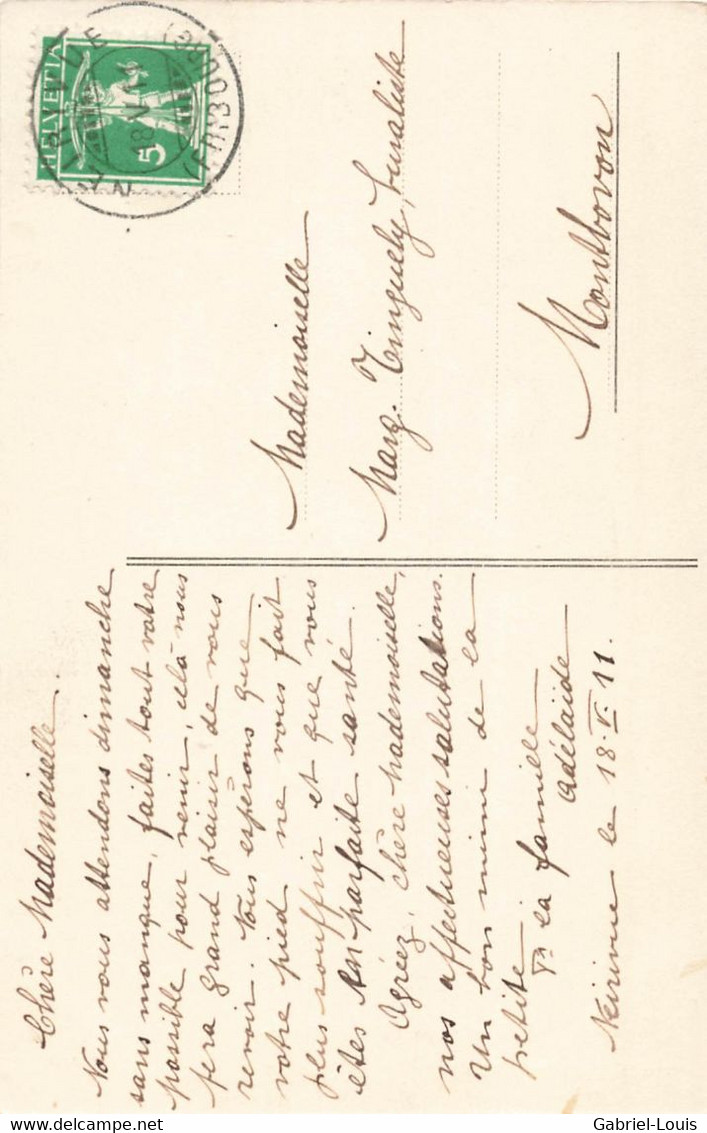 Chère Mademoiselle.
Nous vous attendons dimanche
sans manque, faites tout votre
possible pour venir, celà nous
fera grand plaisir de vous
revoir. Nous espérons que
votre pied ne vous fait
plus souffrir et que vous
êtes en parfaite santé.
Agréez, chère Mademoiselle,
nos affectueuses salutations.
Un bon mimi de la
petite
Pr la famille
Adélaïde
Neirivue le 18.V.11.
Mademoiselle
Marg. Tinguely, buraliste
Montbovon
HELVETIA
5
NEIRIVUE
18 V 11
(FRIBOURG)
Gabriel-Louis